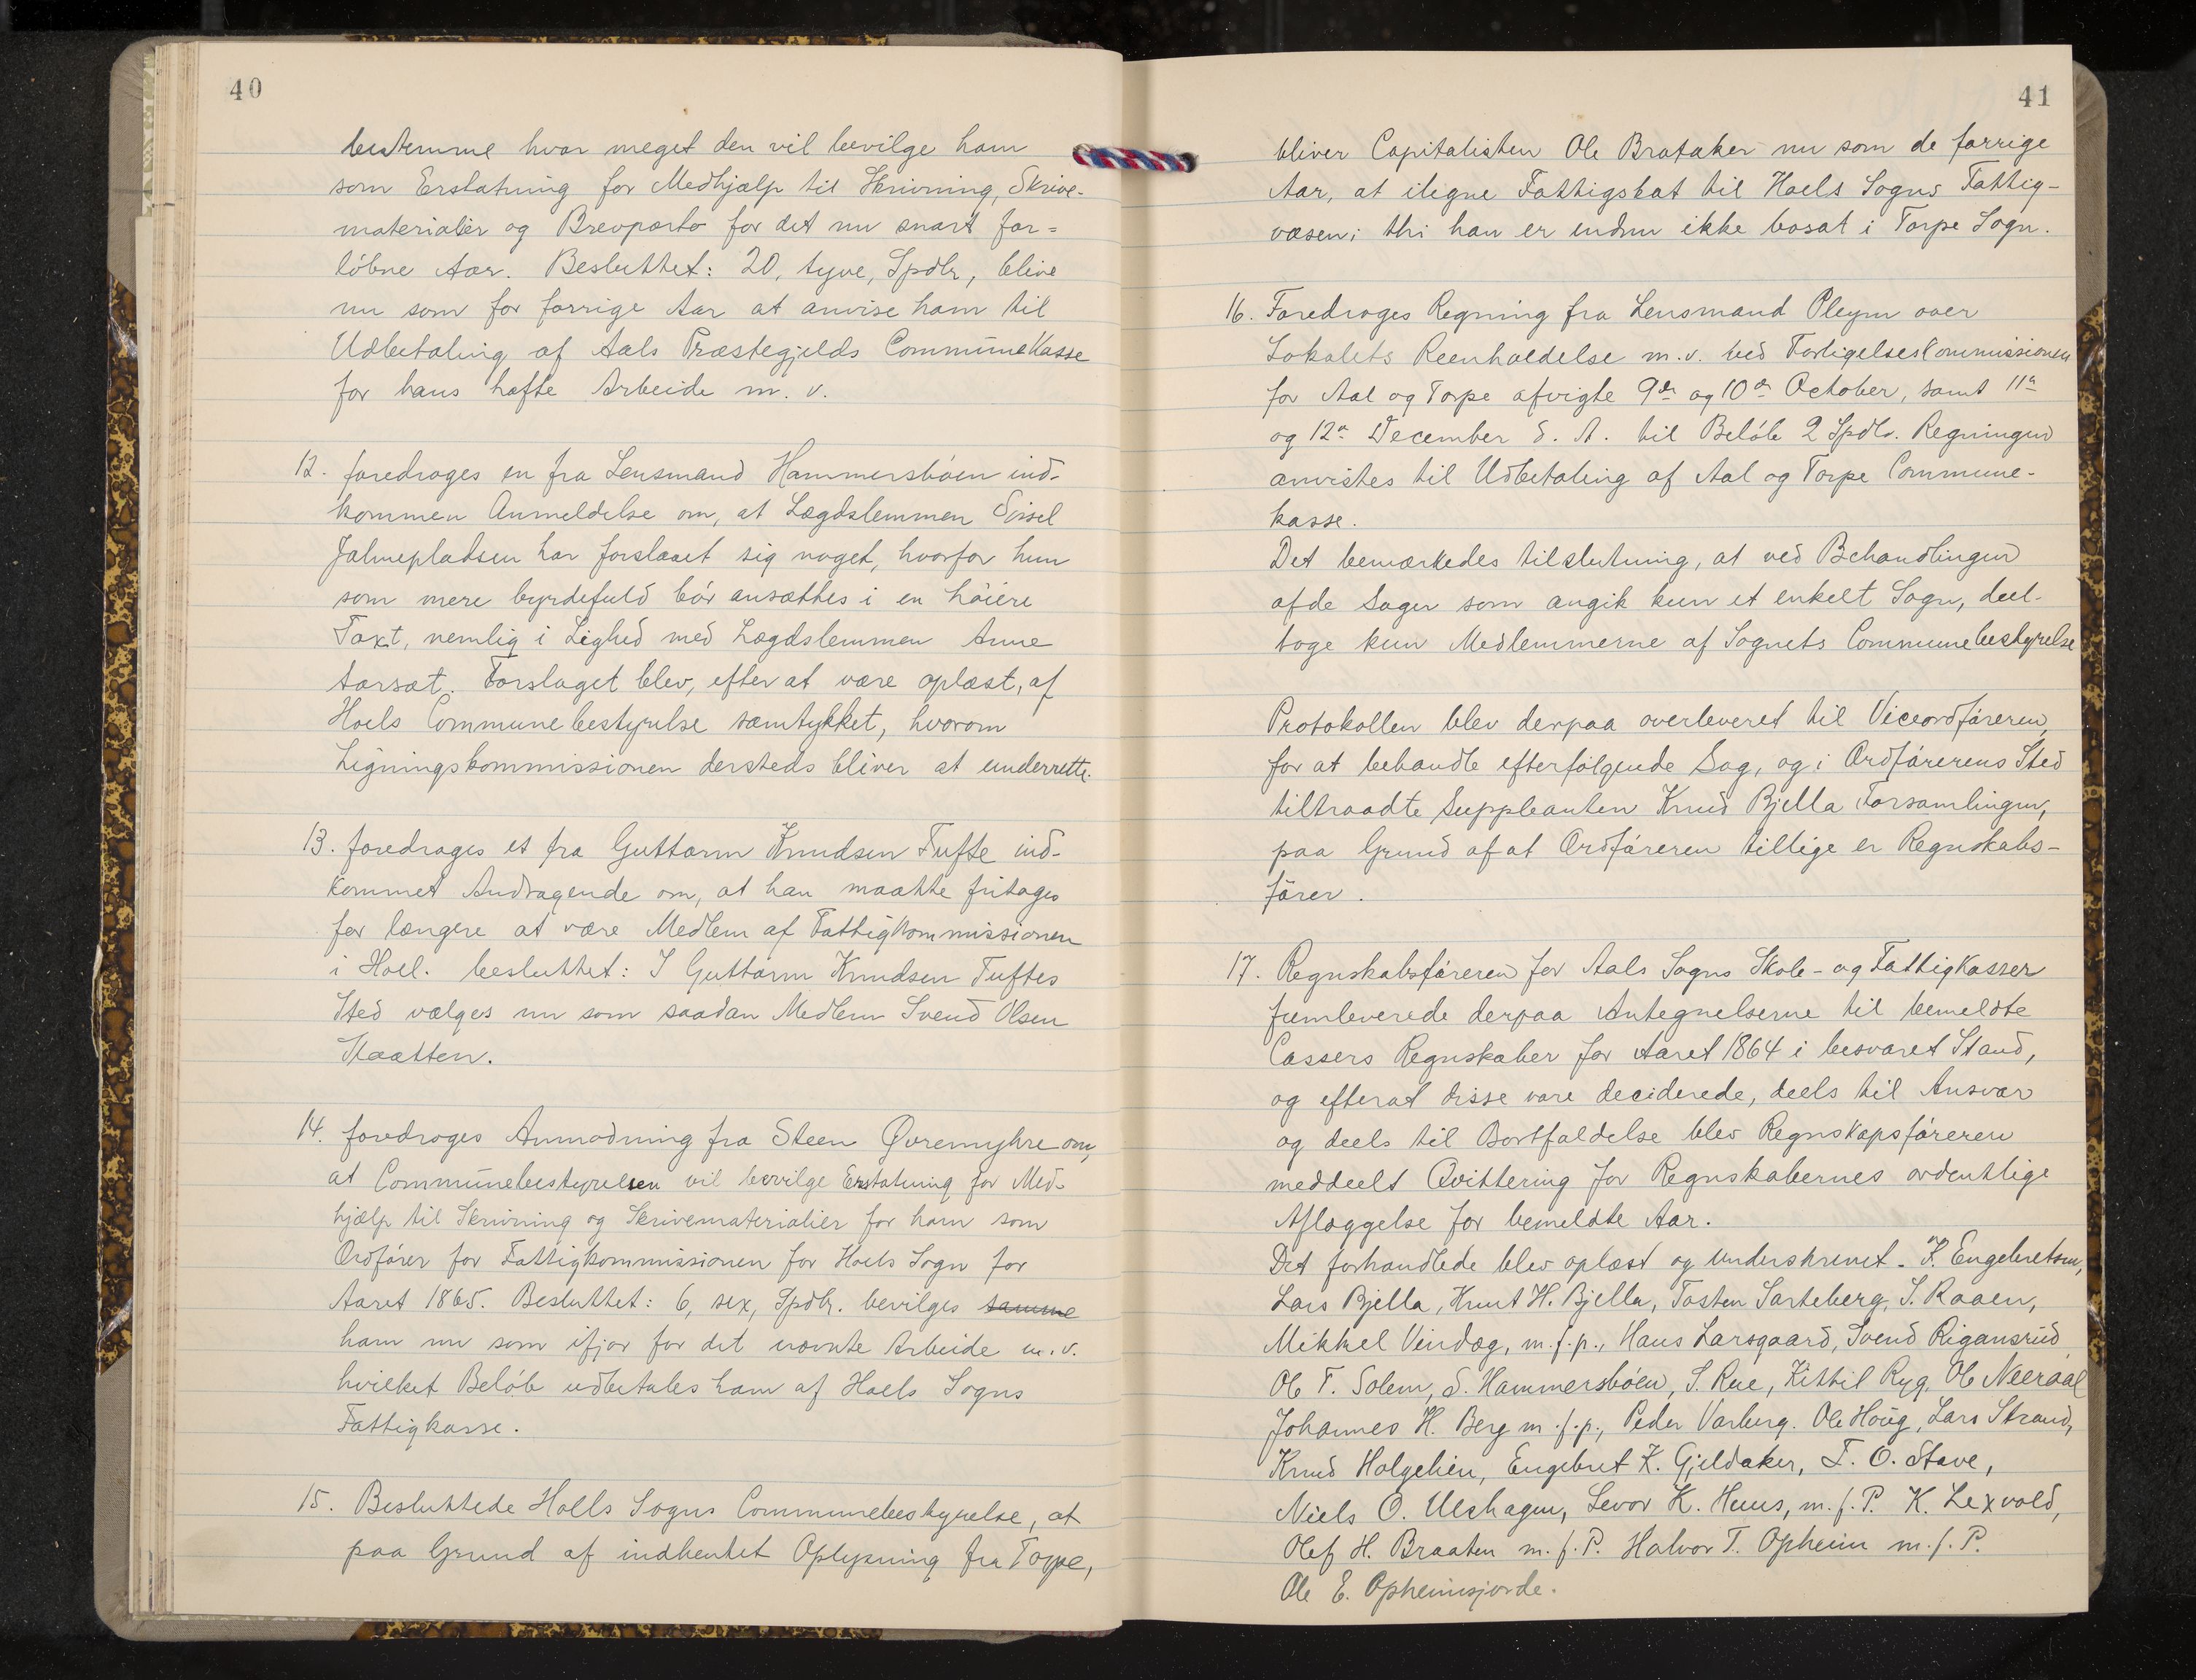 40
bestemme hvor meget den vil bevilge ham
som Erstatning for Medhjælp til Skrivning, Skrive-
materialier og Brevporto for det nu snart for=
løbne Aar. Besluttet: 20, tyve, Spdlr, blive
nu som for forrige Aar at anvise ham til
Udbetaling af Aals Præstegjelds CommuneKasse
for hans hafte Arbeide m. v.
12. foredroges en fra Lensmand Hammersbøen ind-
kommen Anmeldelse om, at Lægdslemmen Sissel
Jalmepladsen har forslaaet sig noget, hvorfor hun
som mere byrdefuld bør ansættes i en høiere
Taxt, nemlig i Lighed med Lægdslemmen Anne
Aarsæt. Forslaget blev, efter at være oplæst, af
Hols Communebestyrelse samtykket, hvorom
Ligningskommissionen dersteds bliver at underrette.
13. foredroges et fra Guttorm Knudsen Tufte ind-
kommet Andragende om, at han maatte fritages
for længere at være Medlem af Fattigkommissionen
i Hoel. besluttet: I Guttorm Knudsen Tuftes
Sted vælges nu som saadan Medlem Svend Olsen
Staatten.
14. foredroges Anmodning fra Steen Øvremyhre om,
at Communebestyrelsen vil bevilge Erstatning for Med-
hjælp til Skrivning og Skrivematerialier for ham som
Ordfører for Fattigkommissionen for Hoels Sogn for
Aaret 1865. Besluttet: 6, sex, Spdlr. bevilges samme
ham nu som ifjor for det nævnte Arbeide m.v.
hvilket Beløb udbetales ham af Hoels Sogns
Fattigkasse.
15. Besluttede Hoels Sogns Communebestyrelse, at
paa Grund af indhentet Oplysning fra Torpe,
41
bliver Capitalisten Ole Brataker nu som de forrige
Aar, at iligne Fattigskat til Hoels Sogns Fattig-
væsen; thi han er endnu ikke bosat i Torpe Sogn.
16. Foredroges Regning fra Lensmand Pleym over
Lokalets Reenholdelse m.v. ved ForligelsesCommissionen
for Aal og Torpe afvigte 9de og 10de October, samt 11te
og 12te December d. A. til Beløb 2 Spdlr. Regningen
anvistes til Udbetaling af Aal og Torpe Commune-
kasse.
Det bemærkedes tilslutning, at ved Behandlingen
af de Sager som angik kun et enkelt Sogn, deel-
toge kun Medlemmerne af Sognets Communebestyrelse
Protokollen blev derpaa overleveret til Viceordføreren,
for at behandle efterfølgende Sag, og i Ordførerens Sted
tiltraadte Suppleanten Knud Bjella Forsamlingen,
paa Grund af at Ordføreren tillige er Regnskabs-
fører.
17. Regnskabsføreren for Aals Sogns Skole- og Fattigkasser
fremleverede derpaa Antegnelserne til bemeldte
Cassers Regnskaber for Aaret 1864 i besvaret Stand,
og efterat disse vare deciderede, deels til Ansvar
og deels til Bortfaldelse blev Regnskapsføreren
meddeelt Qvittering for Regnskabernes ordentlige
Aflæggelse for bemeldte Aar.
Det forhandlede blev oplæst og underskrevet. K. Engebretsen,
Lars Bjella, Knut H. Bjella, Tosten Sarteberg, S. Raaen,
Mikkel Vindæg, m.f.p., Hans Larsgaard, Svend Rigansrud
Ole T. Solem, S. Hammersbøen, S. Rue, Kittil Ryg, Ole Neeraal
Johannes H. Berg m.f.p., Peder Varberg. Ole Houg, Lars Strand,
Knud Holgehien, Engebret K. Gjeldaker, T. O. Stave,
Niels O. Ulshagen, Levor K. Huus, m.f.P. K. Lexvold,
Olef H. Braaten m.f.P. Halvor T. Opheim m.f.P.
Ole E. Opheimsjorde.